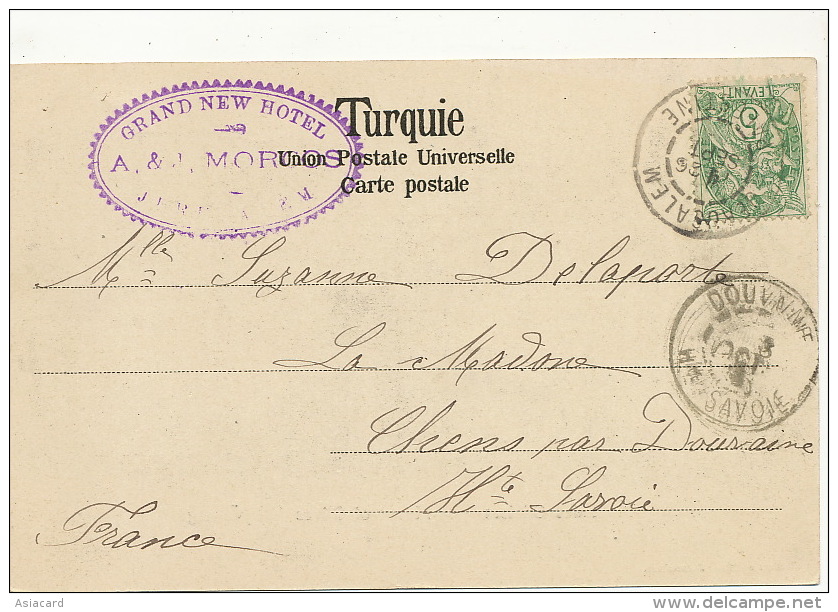 GRAND NEW HOTEL
A. & J. MORCOS
JERUSALEM
Turquie
Union Postale Universelle
Carte postale
LEVANT
5
JERUSALEM
Mlle Suzanne Delaporte
La Madone
Chens par Douvaine
Hte Savoie
France
DOUVAINE
HTE SAVOIE
Asiacard
delcampe.net